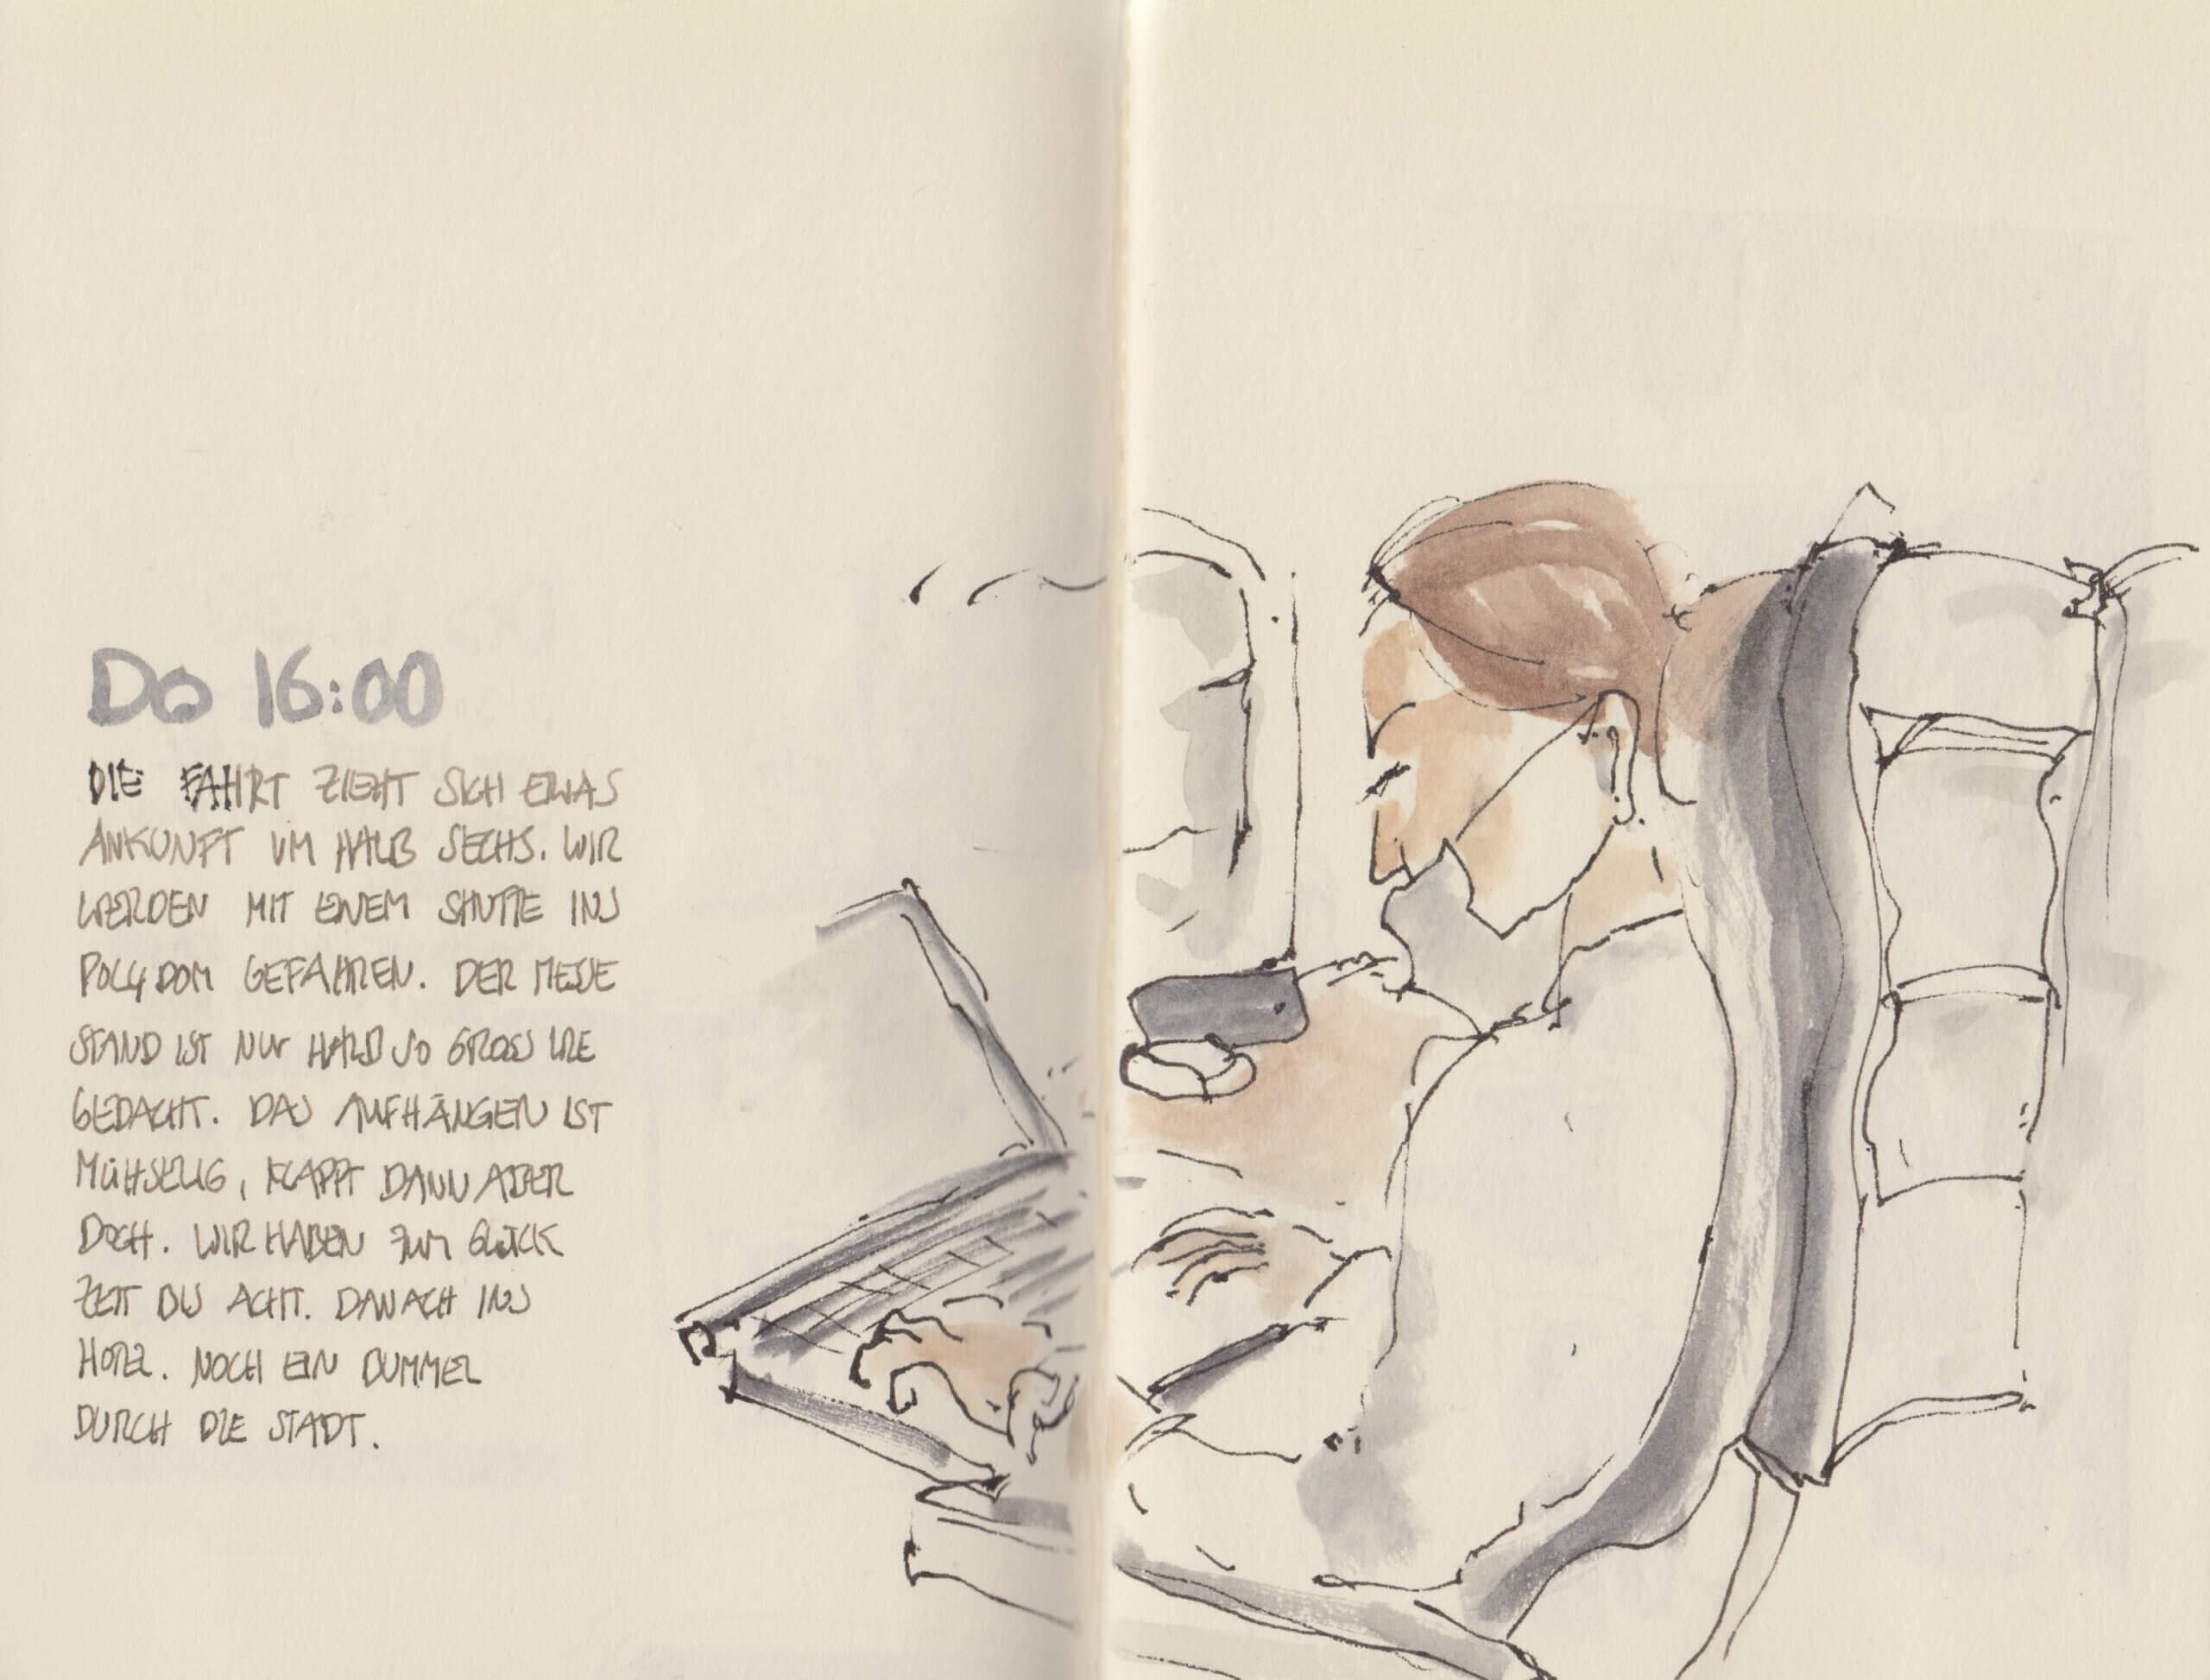 Do 16:00
DIE FAHRT ZIEHT SICH ETWAS
ANKUNFT UM HALB SECHS. WIR
WERDEN MIT EINEM SHUTTLE INS
POLYDOM GEFAHREN. DER MESSE
STAND IST NUR HALB SO GROSS WIE
GEDACHT. DAS AUFHÄNGEN IST
MÜHSELIG, KLAPPT DANN ABER
DOCH. WIR HABEN ZUM GLÜCK
ZEIT BIS ACHT. DANACH INS
HOTEL. NOCH EIN BUMMEL
DURCH DIE STADT.